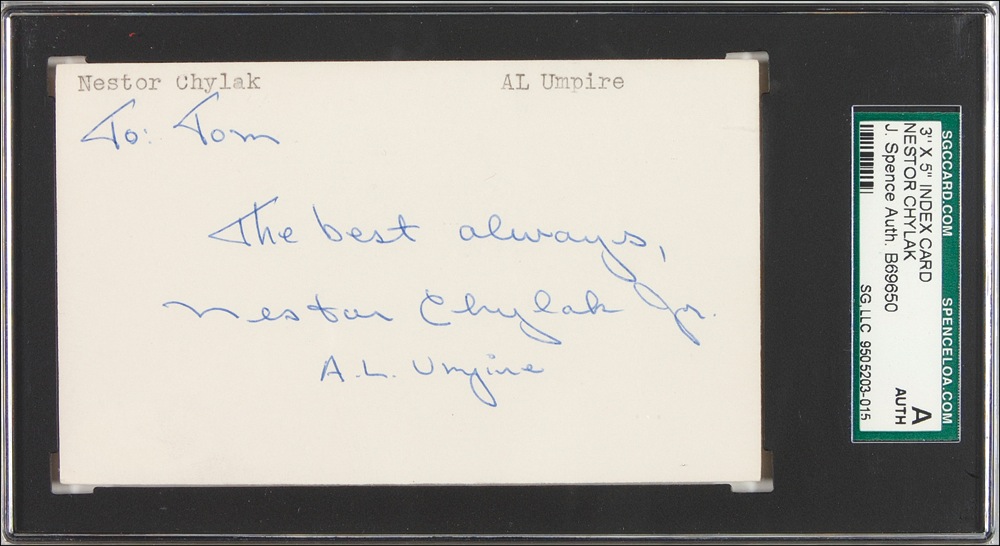 Nestor Chylak AL Umpire
To: Tom
The best always,
Nestor Chylak Jr.
A.L. Umpire
SGCCARD.COM SPENCELOA.COM
3" X 5" INDEX CARD
NESTOR CHYLAK
J. Spence Auth. B69650
A
AUTH
SG, LLC 9505203-015